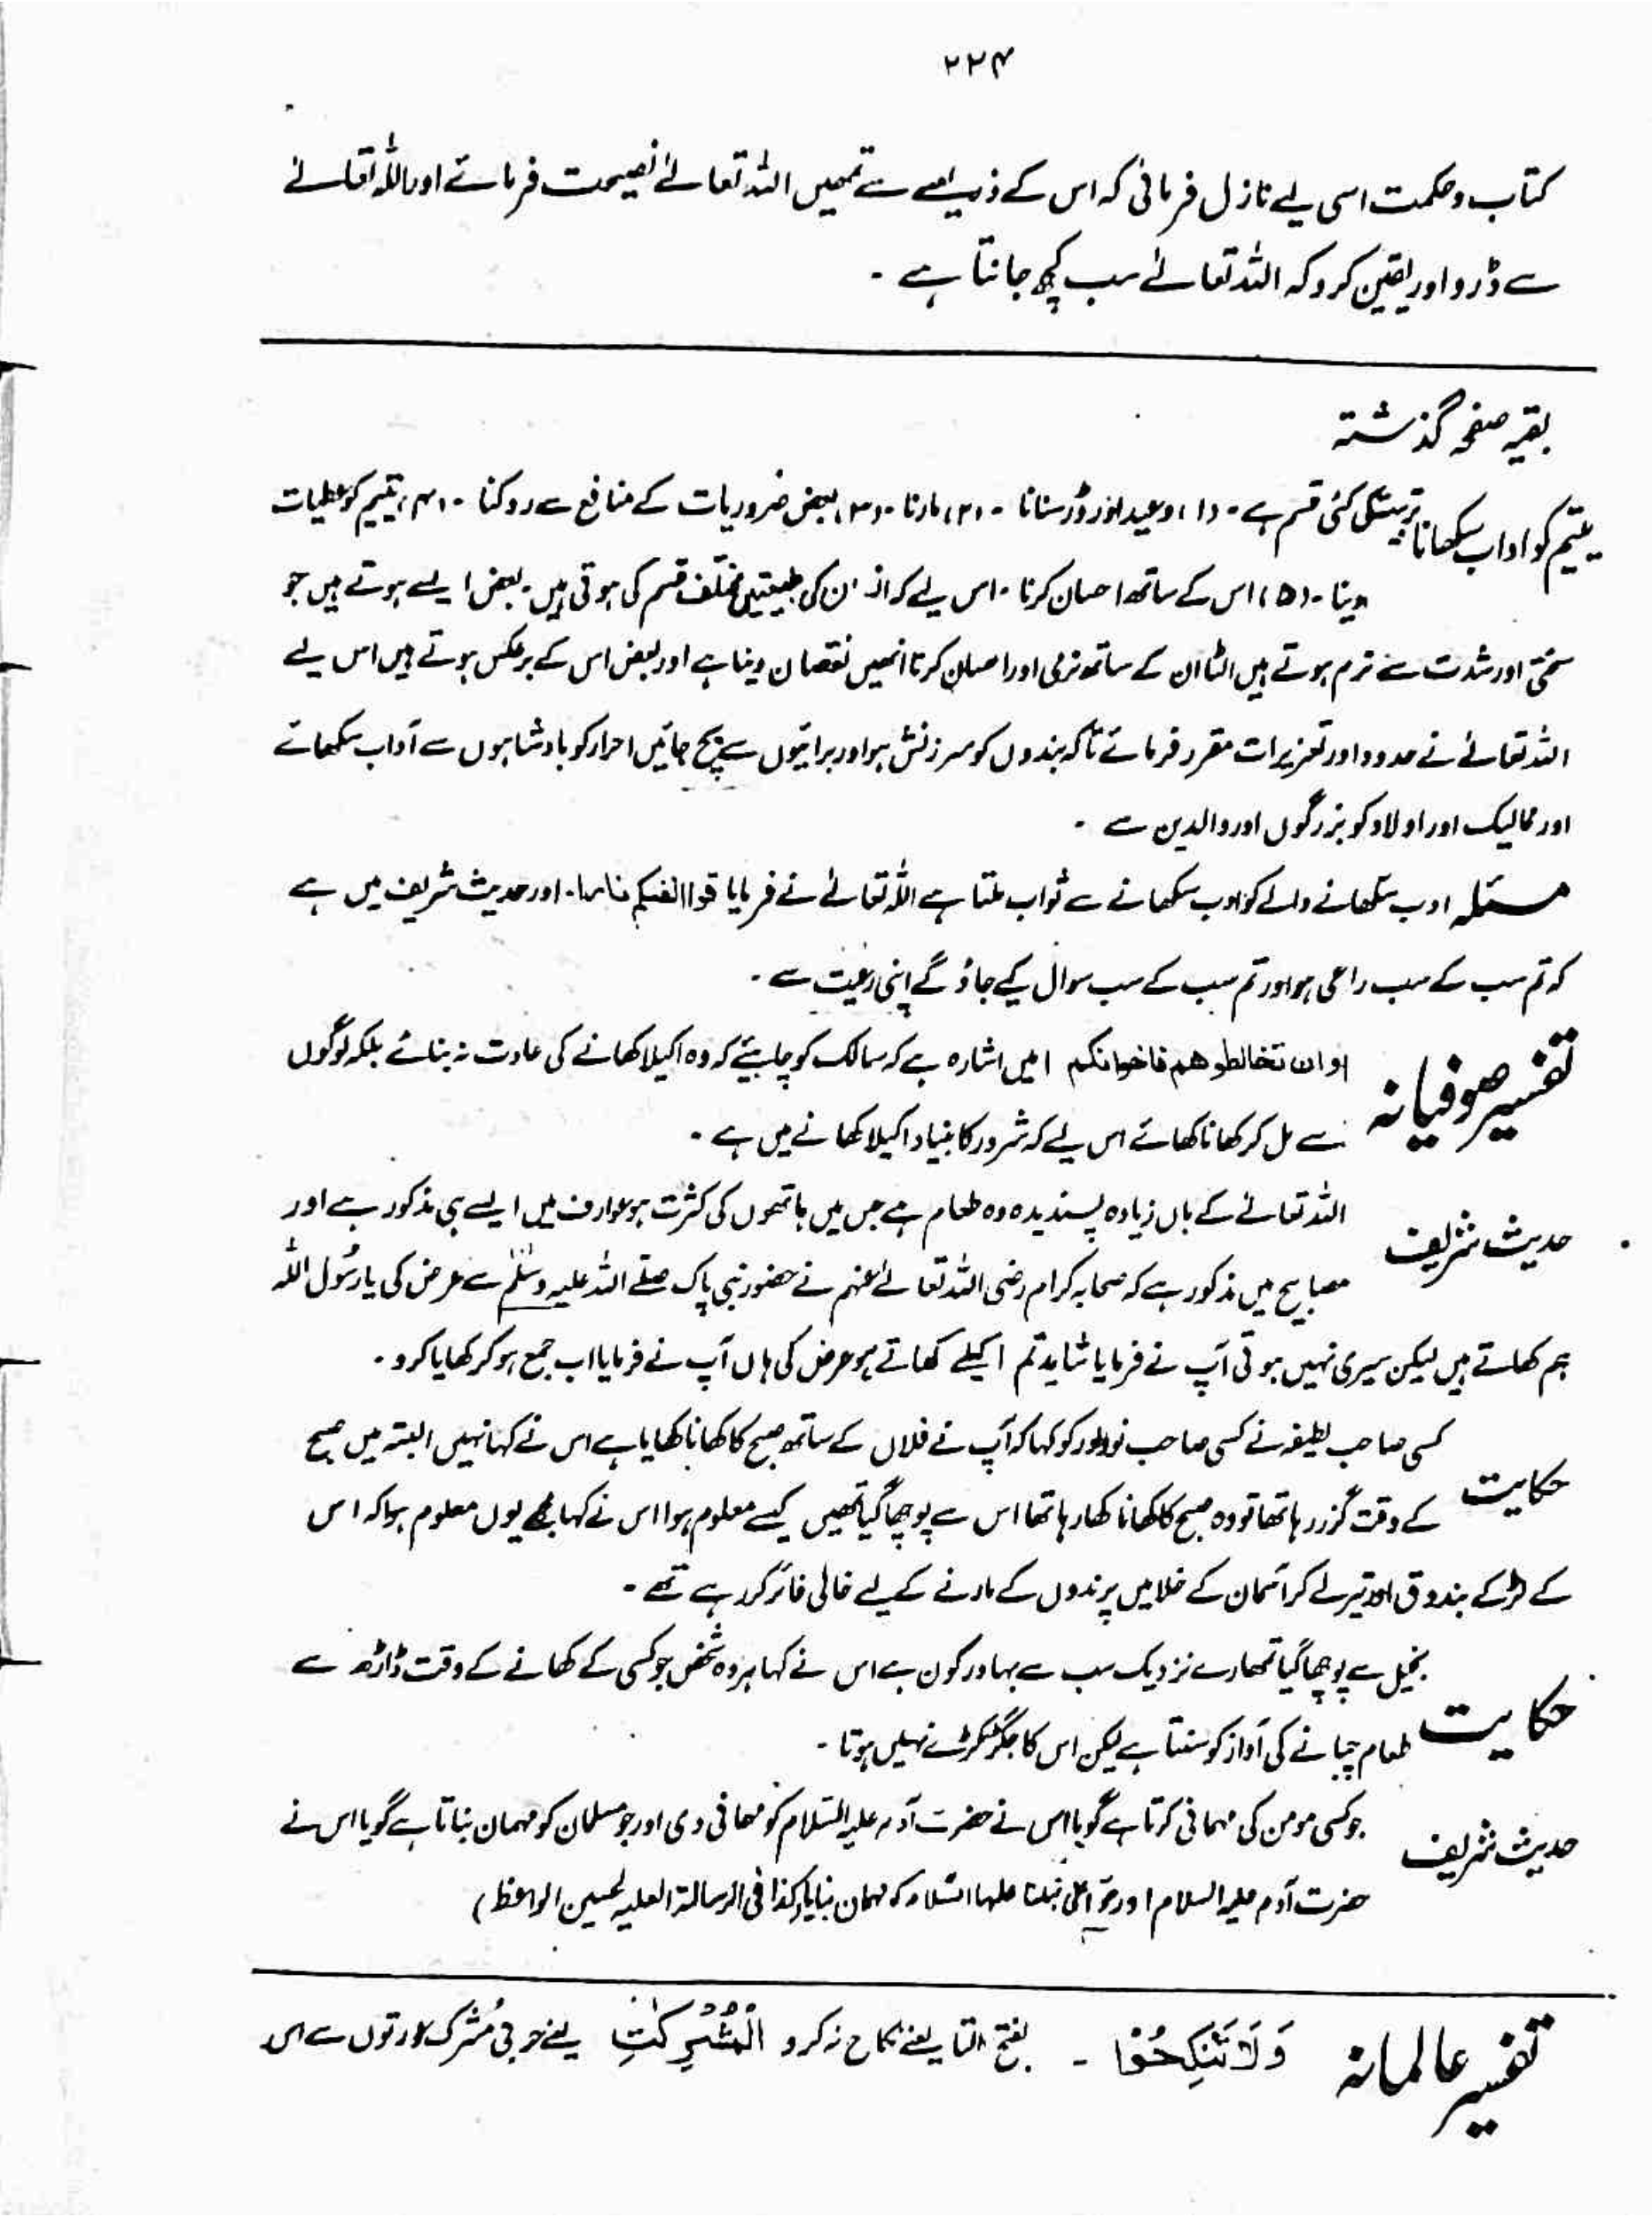 ۲۲۴
کتاب و حکمت اسی لیے نازل فرمائی کہ اس کے ذریعے سے تمھیں اللہ تعالےٰ نصیحت فرمائے اور اللہ تعالےٰ
سے ڈرو اور یقین کرو کہ اللہ تعالےٰ سب کچھ جانتا ہے ۔
بقیہ صفحہ گذشتہ
یتیم کو اداب سکھانا کئی قسم ہے ۔ (۱) وعید اور ڈر سنانا ۔ (۲) مارنا ۔ (۳) بعض ضروریات کے منافع سے روکنا ۔ (۴) یتیم کو عطیات
دینا ۔ (۵) اس کے ساتھ احسان کرنا ۔ اس لیے کہ ان کی طبیعتیں مختلف قسم کی ہوتی ہیں ۔ بعض ایسے ہوتے ہیں جو
سختی اور شدت سے نرم ہوتے ہیں الٹا ان کے ساتھ نرمی اور احسان کرنا انھیں نقصان دیتا ہے اور بعض اس کے برعکس ہوتے ہیں اس لیے
اللہ تعالےٰ نے حدود اور تعزیرات مقرر فرمائے تاکہ بندوں کو سرزنش ہو اور برائیوں سے بچ جائیں احرار کو بادشاہوں سے آداب سکھائے
اور ممالیک اور اولاد کو بزرگوں اور والدین سے ۔
مسئلہ ادب سکھانے والے کو ادب سکھانے سے ثواب ملتا ہے اللہ تعالےٰ نے فرمایا قوا انفسکم نارا۔ اور حدیث شریف میں ہے
کہ تم سب کے سب راعی ہو اور تم سب کے سب سوال کیے جاؤ گے اپنی رعیت سے ۔
تفسیر صوفیانہ او ان تخالطوھم فاخوانکم امیں اشارہ ہے کہ سالک کو چاہیئے کہ وہ اکیلا کھانے کی عادت نہ بنائے بلکہ لوگوں
سے مل کر کھانا کھائے اس لیے کہ شرور کا بنیاد اکیلا کھانے میں ہے ۔
حدیث شریف اللہ تعالےٰ کے ہاں زیادہ پسندیدہ وہ طعام ہے جس میں ہاتھوں کی کثرت ہو عوارف میں ایسے ہی مذکور ہے اور
مصابیح میں مذکور ہے کہ صحابہ کرام رضی اللہ تعالےٰ عنہم نے حضور نبی پاک صلے اللہ علیہ وسلم سے عرض کی یا رسول اللہ
ہم کھاتے ہیں لیکن سیری نہیں ہوتی آپ نے فرمایا شاید تم اکیلے کھاتے ہو عرض کی ہاں آپ نے فرمایا اب جمع ہو کر کھایا کرو ۔
حکایت کسی صاحب لطیفہ نے کسی صاحب کو کہا کہ آپ نے فلاں کے ساتھ صبح کا کھانا کھایا ہے اس نے کہا نہیں البتہ میں صبح
کے وقت گزر رہا تھا تو وہ صبح کا کھانا کھا رہا تھا اس سے پوچھا گیا تمھیں کیسے معلوم ہوا اس نے کہا مجھے یوں معلوم ہوا کہ اس
کے لڑکے بندوق اور تیر لے کر آسمان کے خلا میں پرندوں کے مارنے کے لیے خالی فائر کر رہے تھے ۔
حکایت بخیل سے پوچھا گیا تمھارے نزدیک سب سے بہادر کون ہے اس نے کہا ہر وہ شخص جو کسی کے کھانے کے وقت ڈاڑھ سے
طعام چبانے کی آواز کو سنتا ہے لیکن اس کا جگر ٹکڑے نہیں ہوتا ۔
حدیث شریف جو کسی مومن کی مہمانی کرتا ہے گویا اس نے حضرت آدم علیہ السّلام کو معافی دی اور جو مسلمان کو مہمان بناتا ہے گویا اس نے
حضرت آدم علیہ السلام اور حوّا علیہا السّلام کو مہمان بنایا (کذا فی الرسالۃ العلیہ لحسین الواعظ)
تفسیر عالمانہ وَلَا تَنْكِحُوْا ۔ بفتح التا یعنے نکاح نہ کرو الْمُشْرِكٰتِ یعنے حربی مُشرک عورتوں سے اس